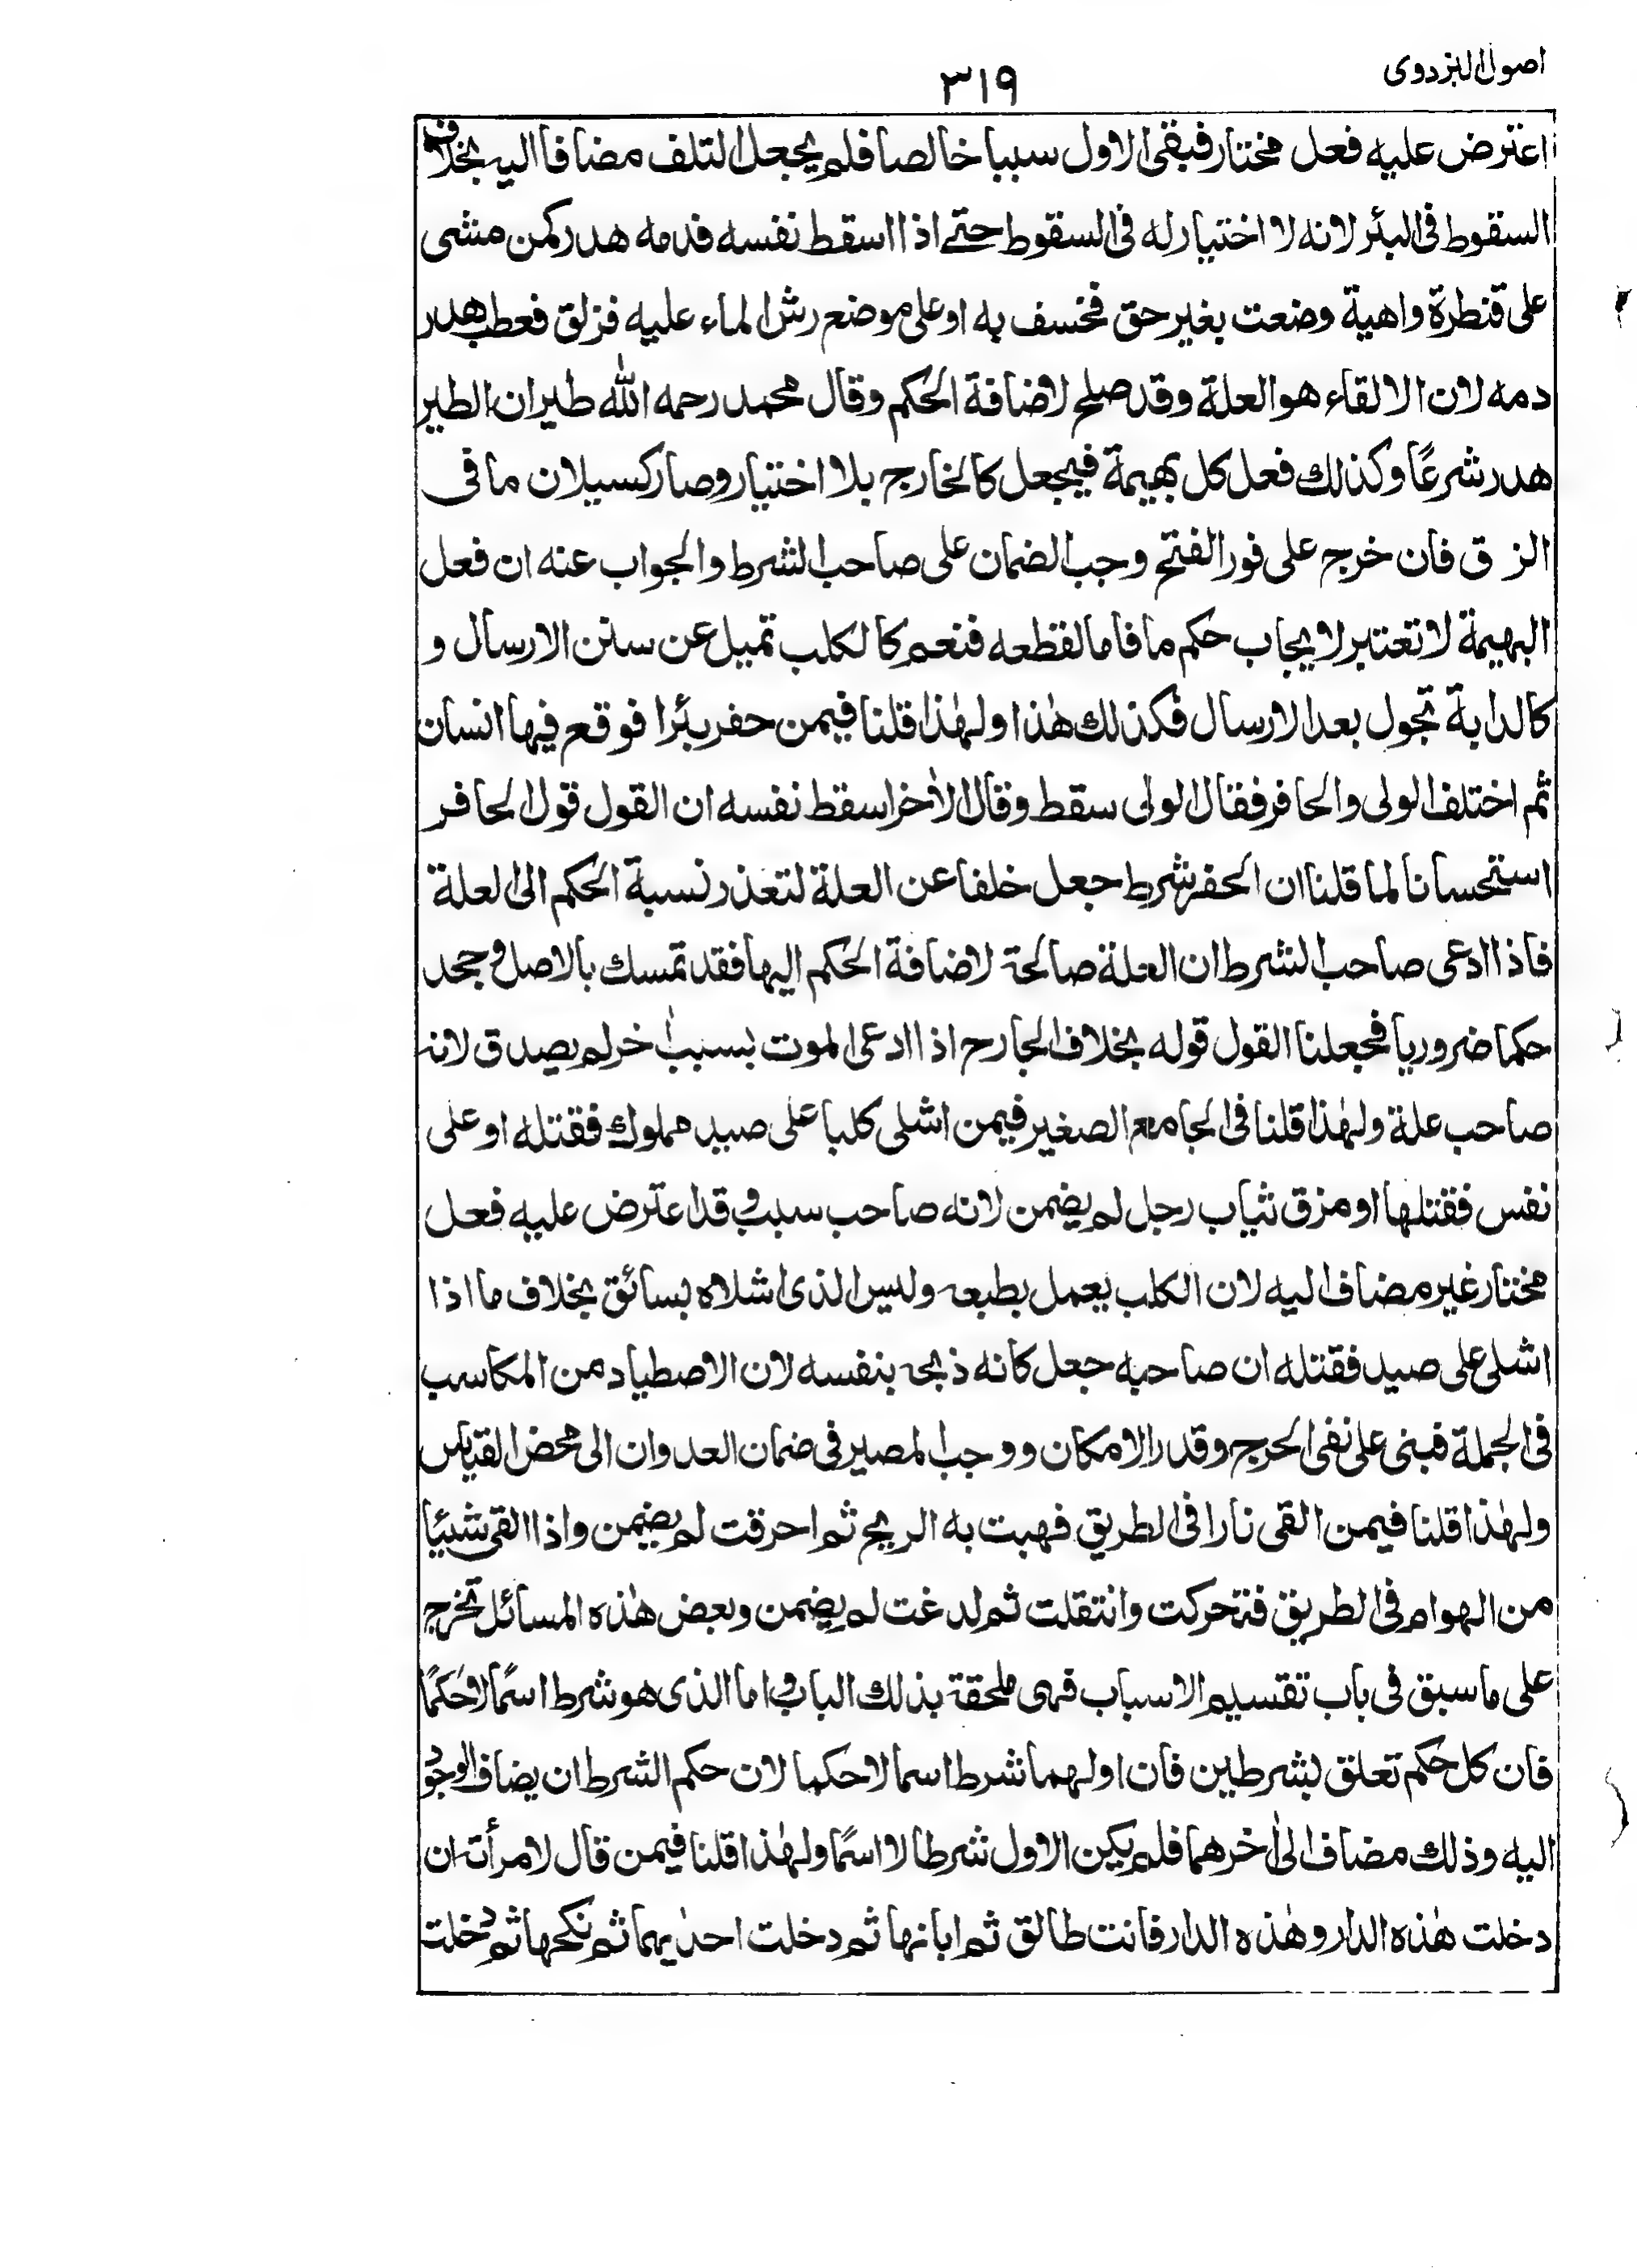 اصول البزدوی
۳۱۹
اعترض عليه فعل مختار فبقى الاول سببا خالصا فلم يجعل التلف مضافا اليه بخلاف
السقوط فى البئر لانه لا اختيار له فى السقوط حتى اذا اسقط نفسه فدمه هدر كمن مشى
على قنطرة واهية وضعت بغير حق فخسف به او على موضع رش الماء عليه فزلق فعطب هدر
دمه لان الالقاء هو العلة وقد صلح لاضافة الحكم وقال محمد رحمه الله طيران الطير
هدر شرعًا وكذلك فعل كل بهيمة فيجعل كالخارج بلا اختيار وصار كسيلان ما فى
الزق فان خرج على فور الفتح وجب الضمان على صاحب الشرط والجواب عنه ان فعل
البهيمة لا تعتبر لايجاب حكم ما فاما لقطعه فنعم كالكلب تميل عن سنن الارسال و
كالدابة تجول بعد الارسال فكذلك هٰذا ولهٰذا قلنا فيمن حفر بئرا فوقع فيها انسان
ثم اختلف الولى والحافر فقال الولى سقط وقال الاٰخر اسقط نفسه ان القول قول الحافر
استحسانا لما قلنا ان الحفر شرط جعل خلفا عن العلة لتعذر نسبة الحكم الى العلة
فاذا ادعى صاحب الشرط ان العلة صالحة لاضافة الحكم اليها فقد تمسك بالاصل وجحد
حكما ضروريا فجعلنا القول قوله بخلاف الجارح اذا ادعى الموت بسبب اٰخر لم يصدق لانه
صاحب علة ولهٰذا قلنا فى الجامع الصغير فيمن اشلى كلبا على صيد مملوك فقتله او على
نفس فقتلها او مزق ثياب رجل لم يضمن لانه صاحب سبب وقد اعترض عليه فعل
مختار غير مضاف اليه لان الكلب يعمل بطبعه وليس الذى اشلاه بسائق بخلاف ما اذا
اشلى على صيد فقتله ان صاحبه جعل كانه ذبحه بنفسه لان الاصطياد من المكاسب
فى الجملة فبنى على نفى الحرج وقدر الامكان ووجب المصير فى ضمان العدوان الى محض القياس
ولهٰذا قلنا فيمن القى نارا فى الطريق فهبت به الريح ثم احرقت لم يضمن واذا القى شيئا
من الهوام فى الطريق فتحركت وانتقلت ثم لدغت لم يضمن وبعض هٰذه المسائل تخرج
على ما سبق فى باب تقسيم الاسباب فهى ملحقة بذلك الباب واما الذى هو شرط اسمًا لا حكمًا
فان كل حكم تعلق بشرطين فان اولهما شرط اسما لا حكما لان حكم الشرط ان يضاف الوجود
اليه وذلك مضاف الى اٰخرهما فلم يكن الاول شرطا لا اسمًا ولهٰذا قلنا فيمن قال لامرأته ان
دخلت هٰذه الدار وهٰذه الدار فانت طالق ثم ابانها ثم دخلت احدٰيهما ثم نكحها ثم دخلت